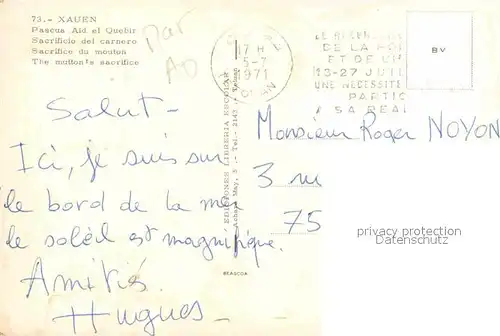 73.- XAUEN
Pascua Aid el Quebir
Sacrificio del carnero
Sacrifice du mouton
The mutton's sacrifice
Mar
AD
17 H
5-7
1971
DE LA
ET DE
13-27 JUIL
UNE NECESSITE
PARTIC
SA REA
BV
Salut -
Ici, je suis sur
le bord de la mer
le soleil est magnifique.
Amitiés.
Hugues -
EDICIONES LIBRERIA ESCOLAR
Monsieur Roger NOYON
3 ru
75
BEASCOA
privacy protection
Datenschutz